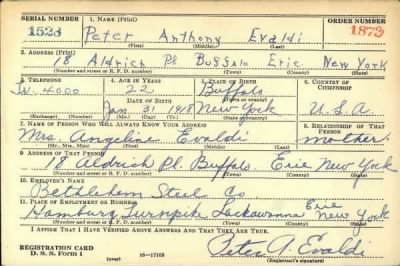 SERIAL NUMBER 1. NAME (Print) ORDER NUMBER
1528 Peter Anthony Evaldi 1873
(First) (Middle) (Last)
2. ADDRESS (Print)
18 Aldrich Pl Buffalo Erie New York
(Number and street or R. F. D. number) (Town) (County) (State)
3. TELEPHONE 4. AGE IN YEARS 5. PLACE OF BIRTH 6. COUNTRY OF CITIZENSHIP
4000 22 Buffalo
DATE OF BIRTH (Town or county)
Jan 31 1918 New York U.S.A
(Exchange) (Number) (Mo.) (Day) (Yr.) (State or country)
7. NAME OF PERSON WHO WILL ALWAYS KNOW YOUR ADDRESS 8. RELATIONSHIP OF THAT PERSON
Mrs. Angeline Evaldi Mother
(Mr., Mrs., Miss) (First) (Middle) (Last)
9. ADDRESS OF THAT PERSON
18 Aldrich Pl. Buffalo. Erie New York
(Number and street or R. F. D. number) (Town) (County) (State)
10. EMPLOYER'S NAME
Bethlehem Steel Co
11. PLACE OF EMPLOYMENT OR BUSINESS
Hamburg Turnpike Lackawanna Erie New York
(Number and street or R. F. D. number) (Town) (County) (State)
I AFFIRM THAT I HAVE VERIFIED ABOVE ANSWERS AND THAT THEY ARE TRUE.
REGISTRATION CARD
D. S. S. Form 1 (over) 16—17105 Peter A. Evaldi
(Registrant's signature)